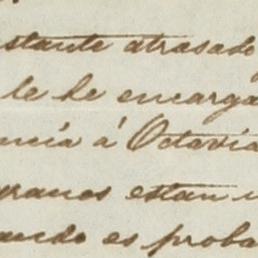 stante atrasado
le he encarga
ncía á Octavia
granos estan
ando es proba